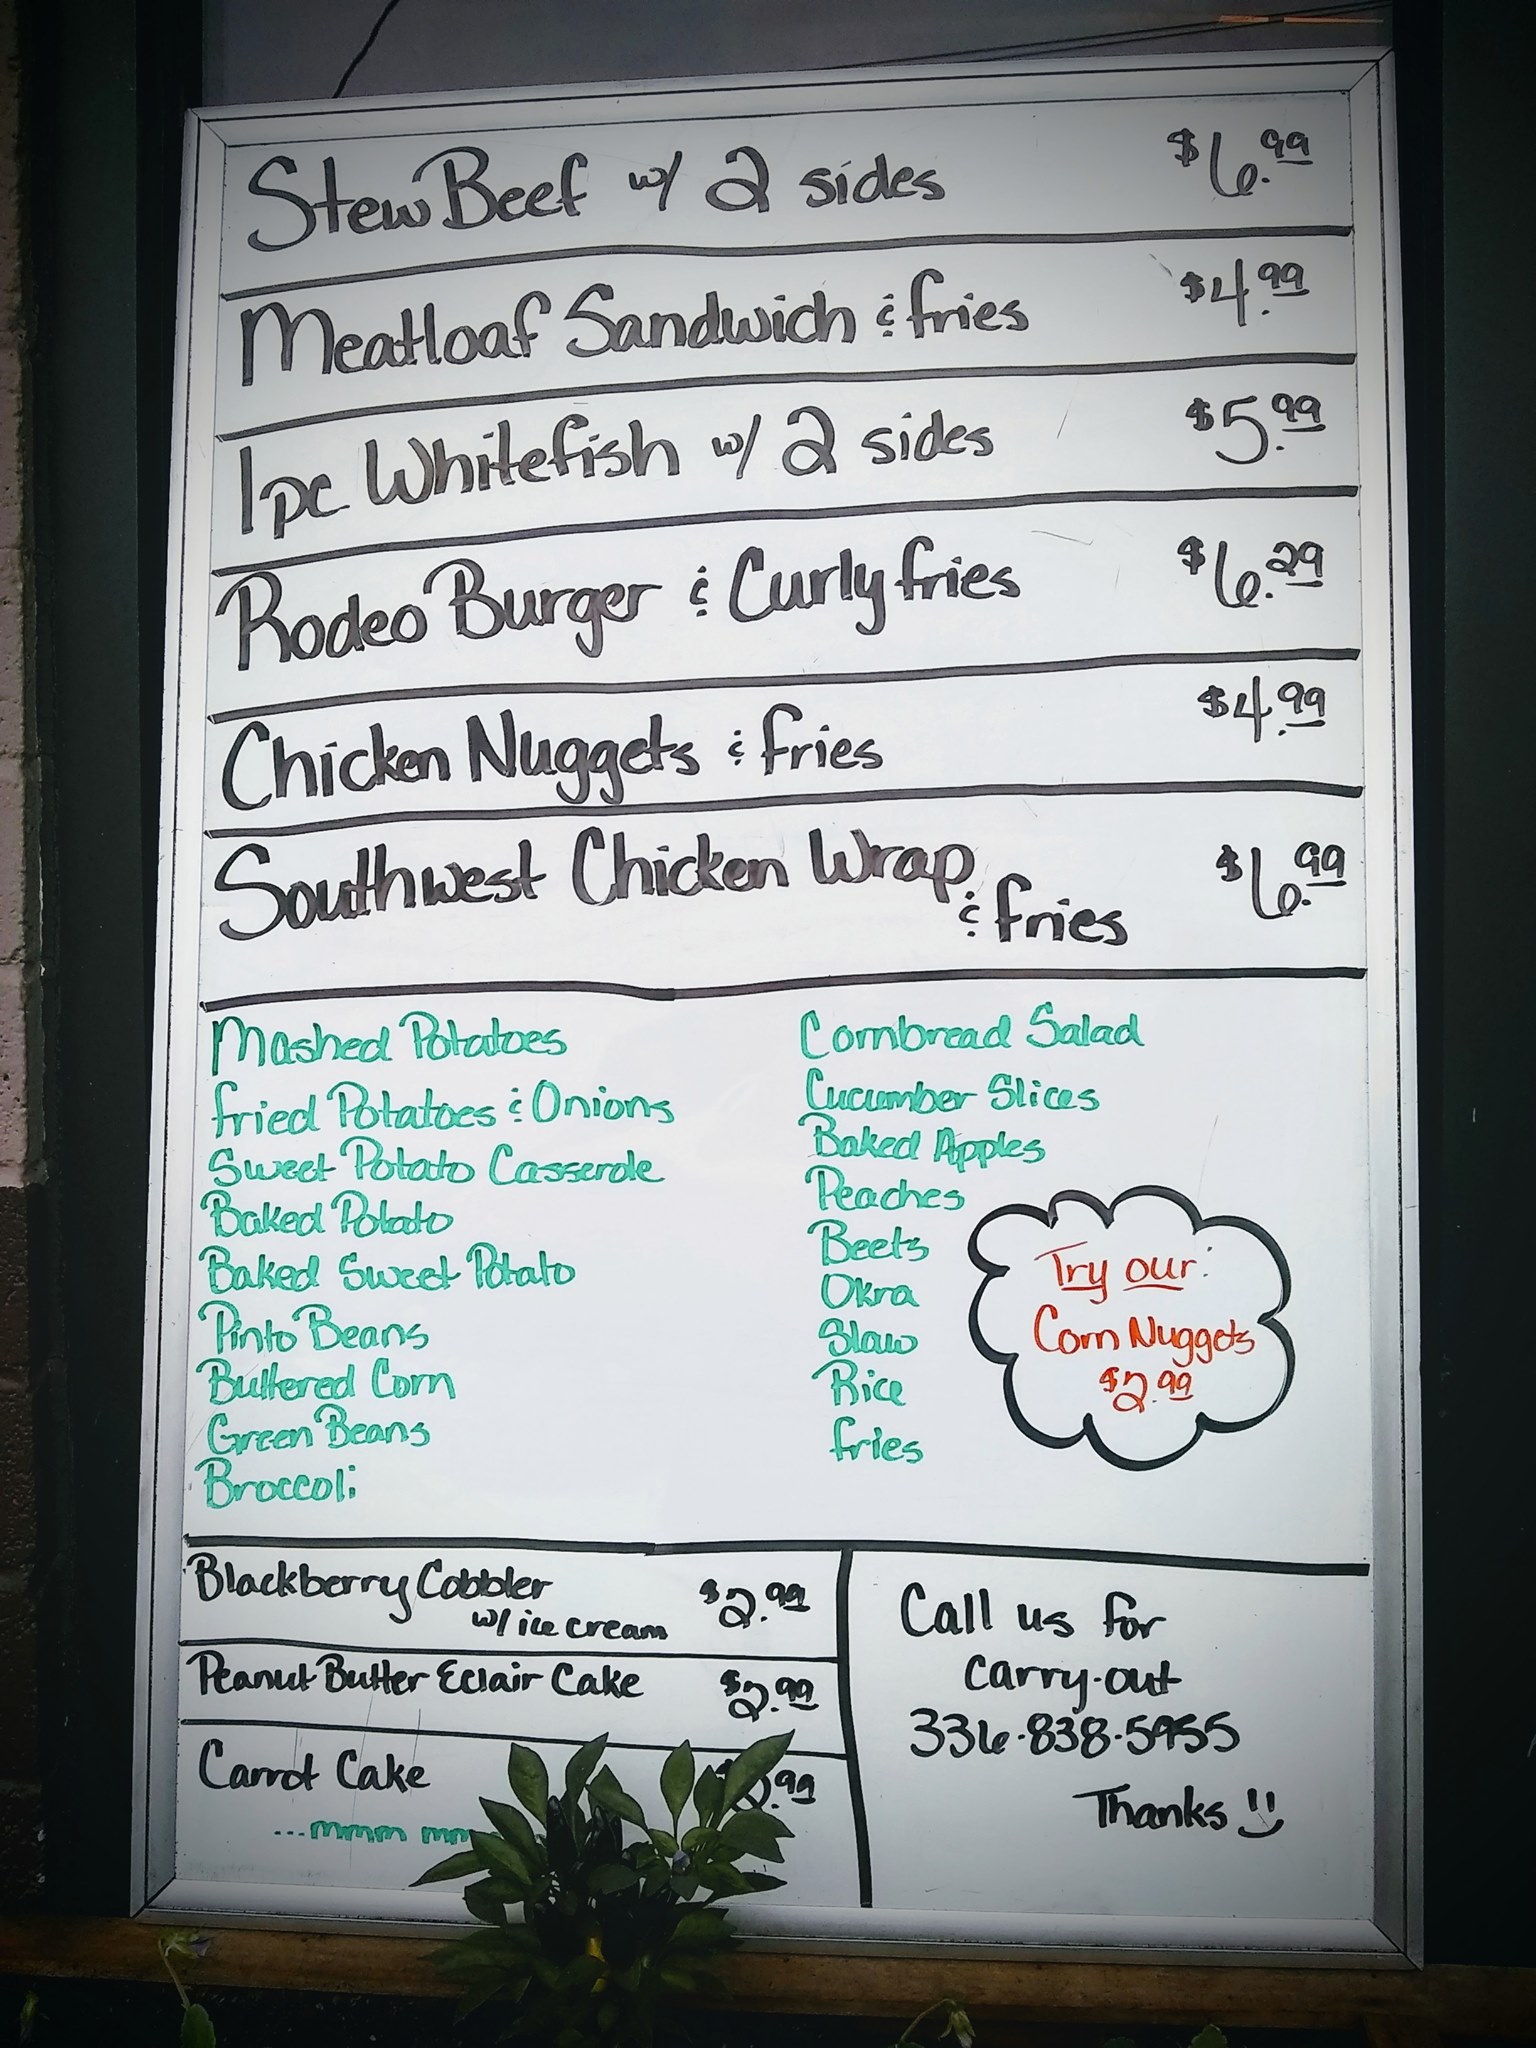 Stew Beef w/ 2 sides $6.99
Meatloaf Sandwich & fries $4.99
1pc Whitefish w/ 2 sides $5.99
Rodeo Burger & Curly fries $6.29
Chicken Nuggets & fries $4.99
Southwest Chicken Wrap $6.99
& fries
Mashed Potatoes
fried Potatoes & Onions
Sweet Potato Casserole
Baked Potato
Baked Sweet Potato
Pinto Beans
Buttered Corn
Green Beans
Broccoli
Cornbread Salad
Cucumber Slices
Baked Apples
Peaches
Beets
Okra
Slaw
Rice
fries
Try our:
Corn Nuggets
$2.99
Blackberry Cobbler $2.99
w/ ice cream
Peanut Butter Eclair Cake $2.99
Carrot Cake
...mmm
Call us for
carry-out
336-838-5955
Thanks